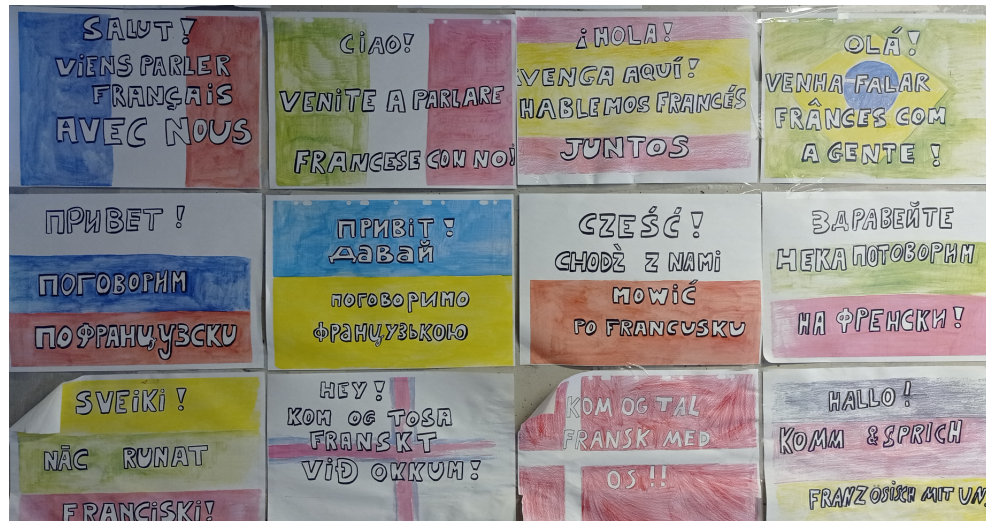 SALUT!
VIENS PARLER
FRANÇAIS
AVEC NOUS
CIAO!
VENITE A PARLARE
FRANCESE CON NOI
¡HOLA!
VENGA AQUÍ!
HABLEMOS FRANCÉS
JUNTOS
OLÁ!
VENHA FALAR
FRÂNCES COM
A GENTE!
ПРИВЕТ!
ПОГОВОРИМ
ПОФРАНЦУЗСКИ
ПРИВІТ!
ДАВАЙ
ПОГОВОРИМО
ФРАНЦУЗЬКОЮ
CZEŚĆ!
CHODŹ Z NAMI
MOWIĆ
PO FRANCUSKU
ЗДРАВЕЙТЕ
НЕКА ПОТОВОРИМ
НА ФРЕНСКИ!
SVEIKI!
NĀC RUNAT
FRANCISKI!
HEY!
KOM OG TOSA
FRANSKT
VIÐ OKKUM!
KOM OG TAL
FRANSK MED
OS!!
HALLO!
KOMM & SPRICH
FRANZÖSISCH MIT UN